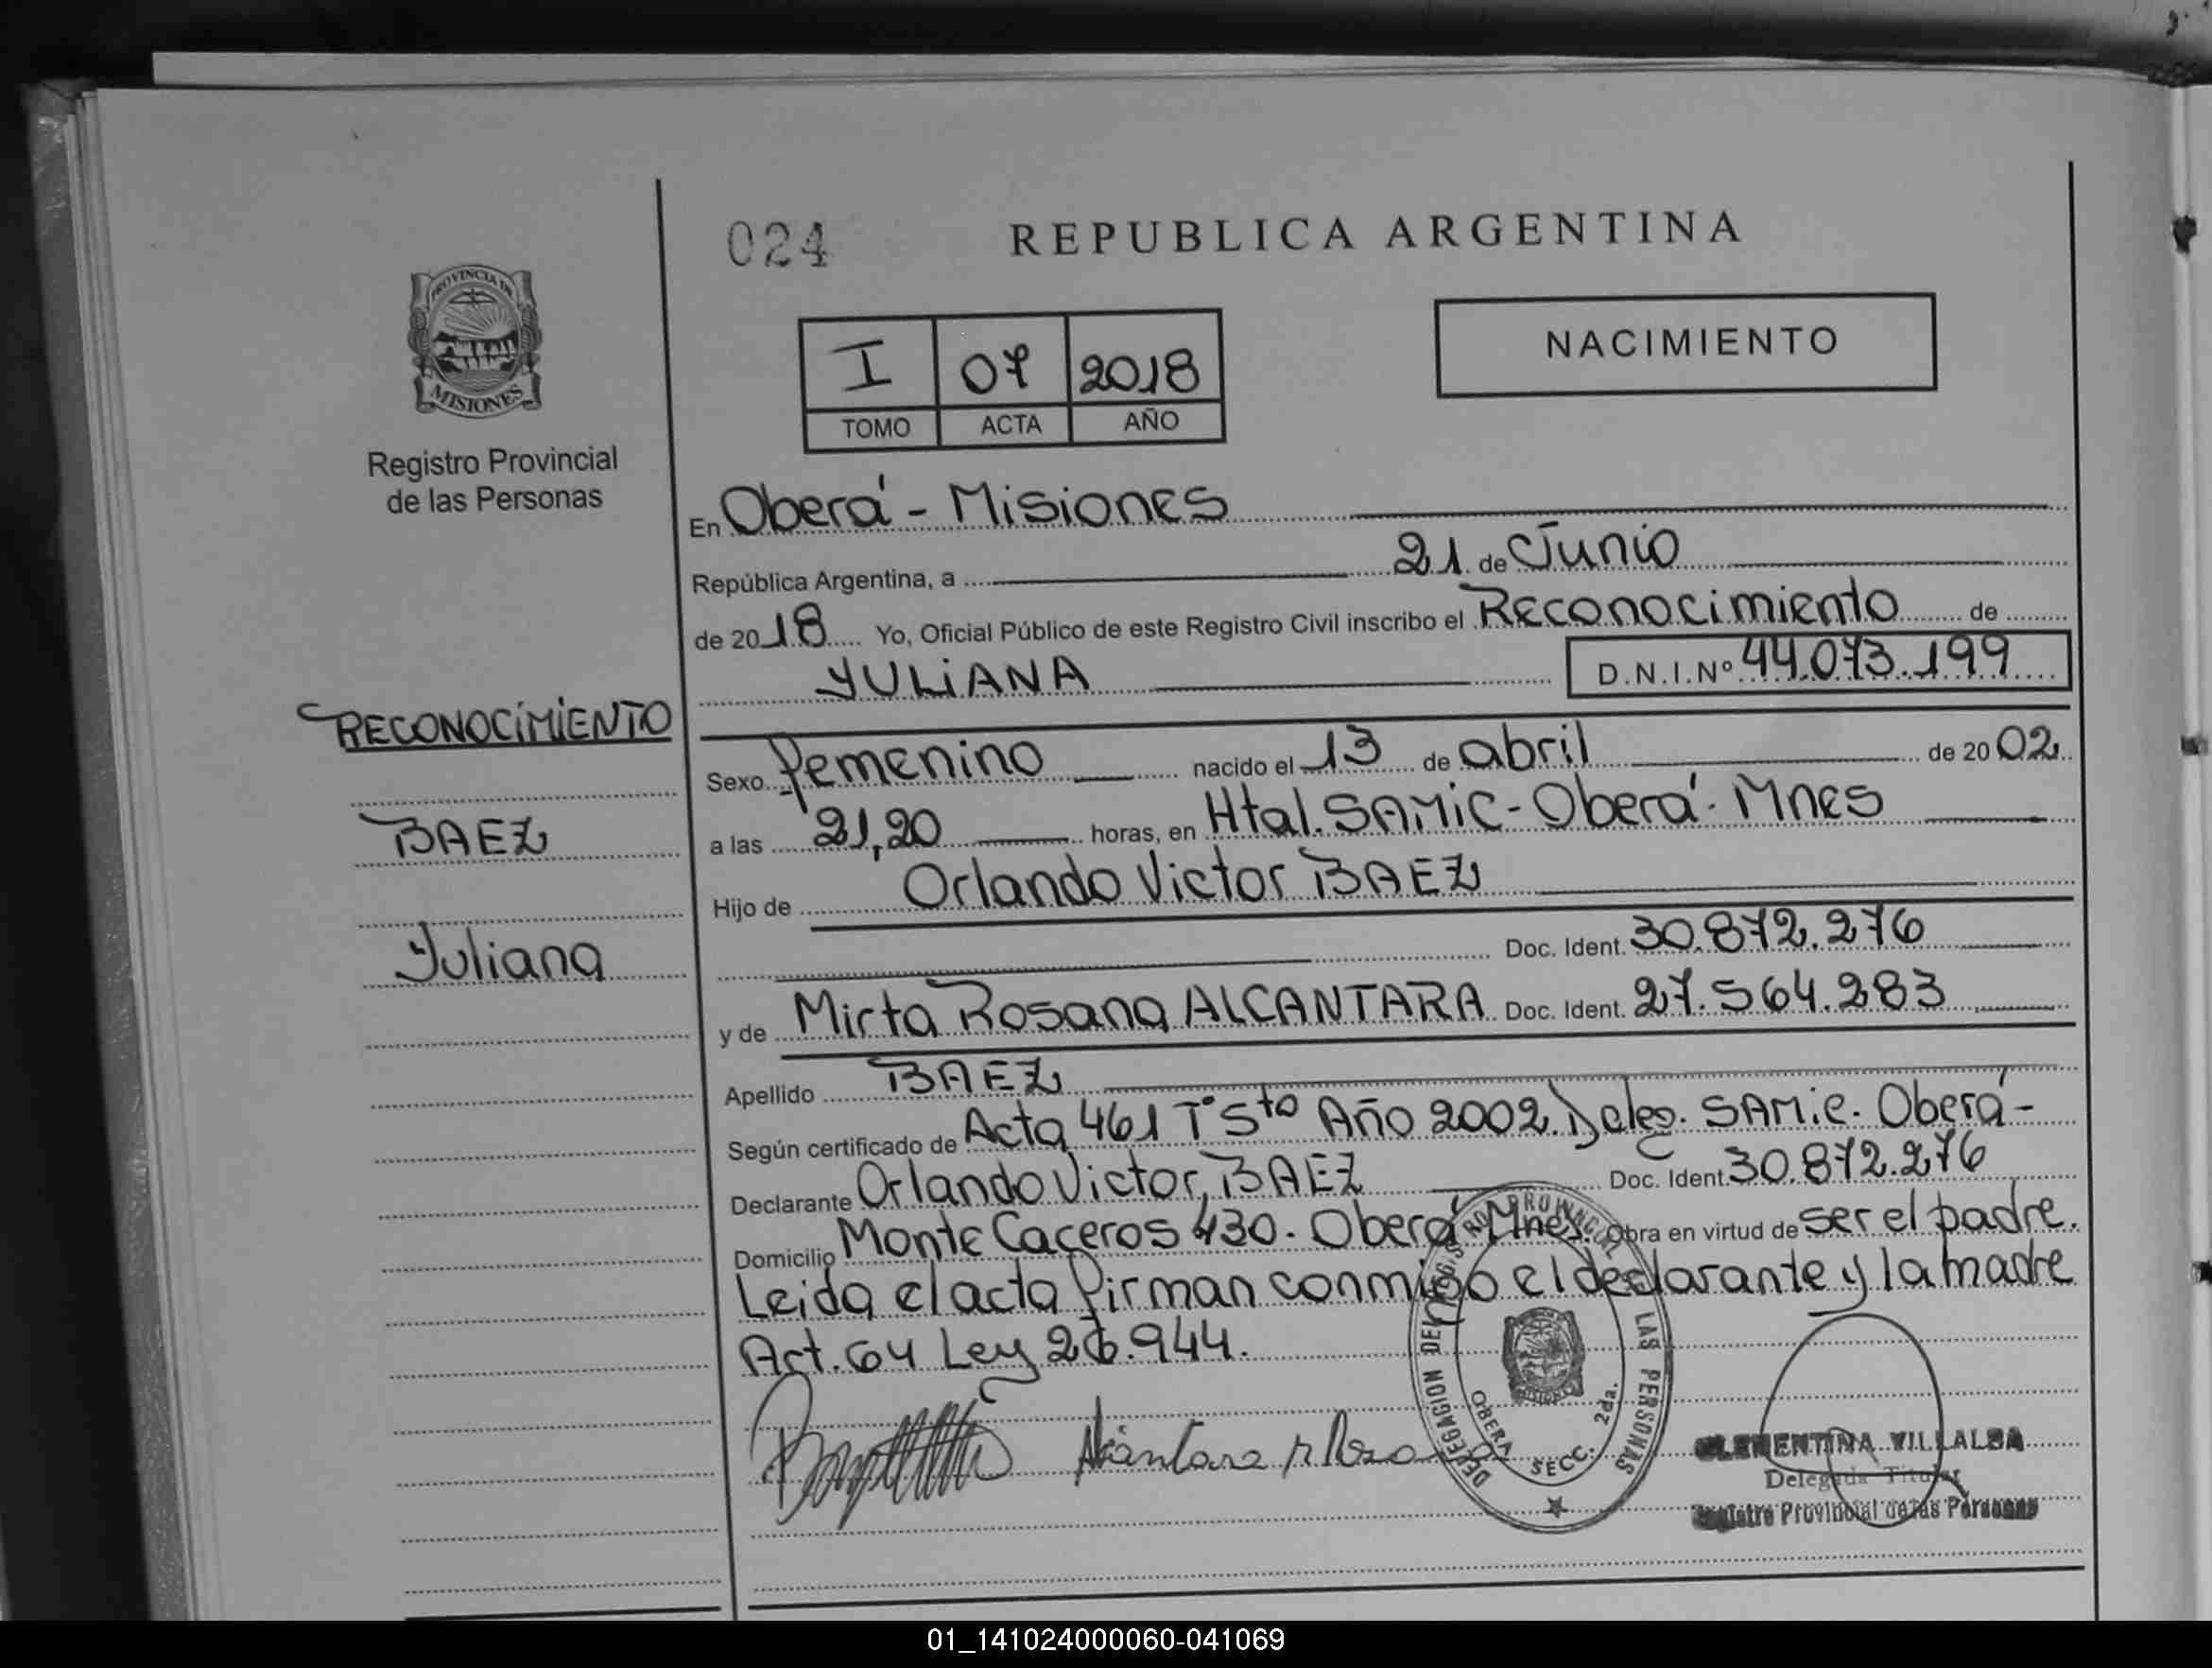 024
REPUBLICA ARGENTINA
PROVINCIA DE
MISIONES
Registro Provincial
de las Personas
I 07 2018
TOMO ACTA AÑO
NACIMIENTO
En Oberá - Misiones
República Argentina, a 21 de Junio
de 2018 Yo, Oficial Público de este Registro Civil inscribo el Reconocimiento de
YULIANA D.N.I.Nº 44.073.199
RECONOCIMIENTO
BAEZ
Yuliana
Sexo Femenino nacido el 13 de abril de 2002
a las 21,20 horas, en Htal. SAMIC - Oberá - Mnes
Hijo de Orlando Victor BAEZ
Doc. Ident. 30.872.276
y de Mirta Rosana ALCANTARA Doc. Ident. 27.564.283
Apellido BAEZ
Según certificado de Acta 461 Tº 5to Año 2002. Deleg. SAMIC. Oberá -
Declarante Orlando Victor, BAEZ Doc. Ident. 30.872.276
Domicilio Monte Caceros 430. Oberá Mnes. Obra en virtud de ser el padre.
Leida el acta firman conmigo el declarante y la madre
Art. 64 Ley 26.944.
Alcantara M Rosana
DELEGACION DEL REGISTRO PROVINCIAL DE LAS PERSONAS
OBERA SECC. 2da.
CLEMENTINA VILLALBA
Delegada Titular
Registro Provincial de las Personas
01_141024000060-041069